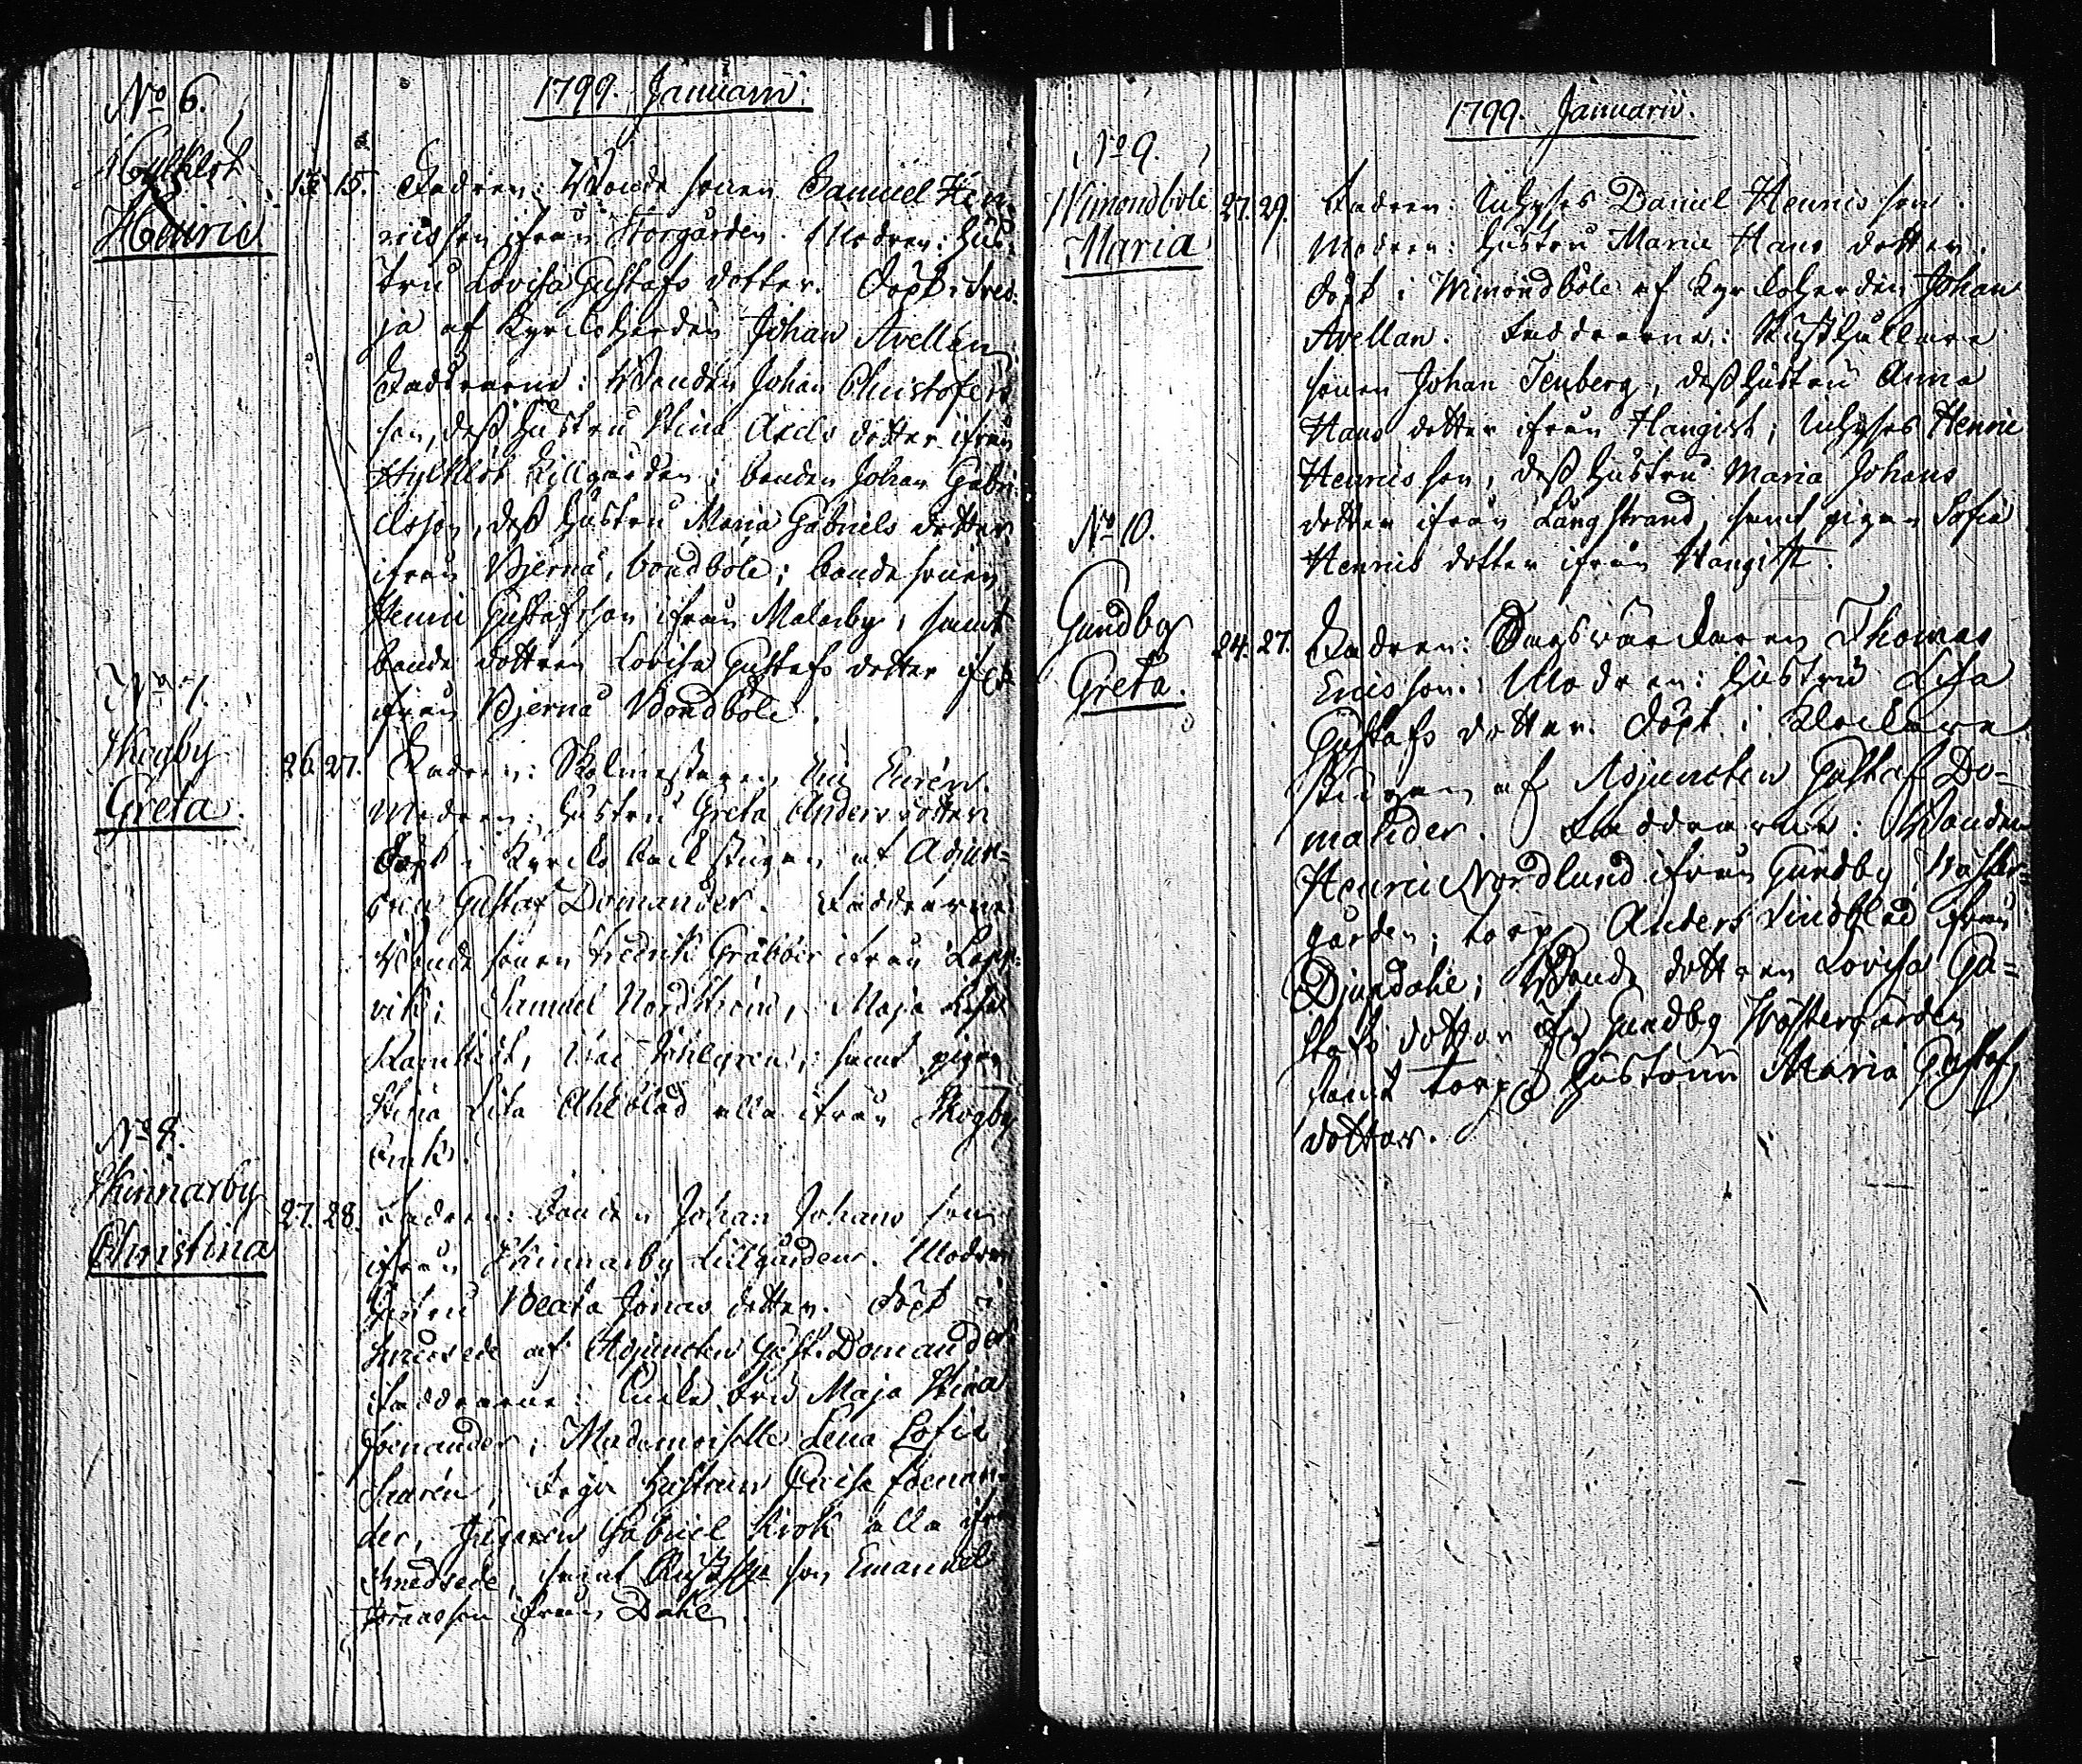 1799. Januarii.
No 6.
Hylkiöt
Henric
15 15. Fadren: Bonde sonen Samuel Hen-
rics son ifrån Storgården. Modren: hus-
tru Lovisa Gustafs dotter. Döpt i
ja af Kyrckoherden Johan Avellan
Faddrarne: Bonden Johan Christofers
son, dess hustru Stina Axels dotter ifrån
Hylkiöt Lillgården; bonden Johan Gabri-
elsson, dess hustru Maria Gabriels dotter
ifrån Bjernå, bondböle; bonde sonen
Henric Gustafsson ifrån Malarby, samt
bonde dottren Lovisa Gustafs dotter
ifrån Bjernå Bondböle.
No 7.
Skogby
Greta.
26. 27. Fadren: Skolmestaren Eurén.
Modren: hustru Greta Anders dotter
Döpt i Kyrcko back stugan af Adjunc-
ten Gustaf Domander. Faddrarne
Bonde sonen Fredrik Gräbber ifrån Lapp-
vik; Samuel Nordström, Maja Lisa
samt pigan
Stina Lisa Ahlblad alla ifrån Skogby
bruk.
No 8.
Skinnarby
Christina
27. 28. Fadren: Bonden Johan Johans son
ifrån Skinnarby Lillgården. Modren
hustru Beata Jonas dotter. Döpt i
af Adjuncten Gust. Domander
Faddrarne: Enke fru Maja Stina
Mademoiselle Lena Sofia
hustrun
der, Gabriel Krok alla ifrån
Smedsede, samt son Emanuel
ifrån Dahl.
1799. Januarii.
No 9.
Wimondböle
Maria
27. 29. Fadren: Inhyses Daniel Henrics son.
Modren: hustru Maria Hans dotter.
Döpt i Wimondböle af Kyrckoherden Johan
Avellan. Faddrarne: Rusthållare
sonen Johan Tenberg, dess hustru Anna
Hans dotter ifrån Hangist; Inhyses Henric
Henrics son, dess hustru Maria Johans
dotter ifrån Långstrand, samt pigan Sofia
Henrics dotter ifrån Hangist.
No 10.
Gundby
Greta.
24. 27. Fadren: Dagsvärckaren Thomas
Erics son. Modren: hustru Lisa
Gustafs dotter. Döpt i Klockare
stugan af Adjuncten Gustaf Do-
mander. Faddrarne: Bonden
Henric Nordlund ifrån Gundby Wäster-
gården; torp. Anders Lindblad ifrån
Djupdahl; Bonde dottren Lovisa Gu-
stafs dotter ifr. Gundby Wästergården
samt torp. hustrun Maria Gustafs
dotter.